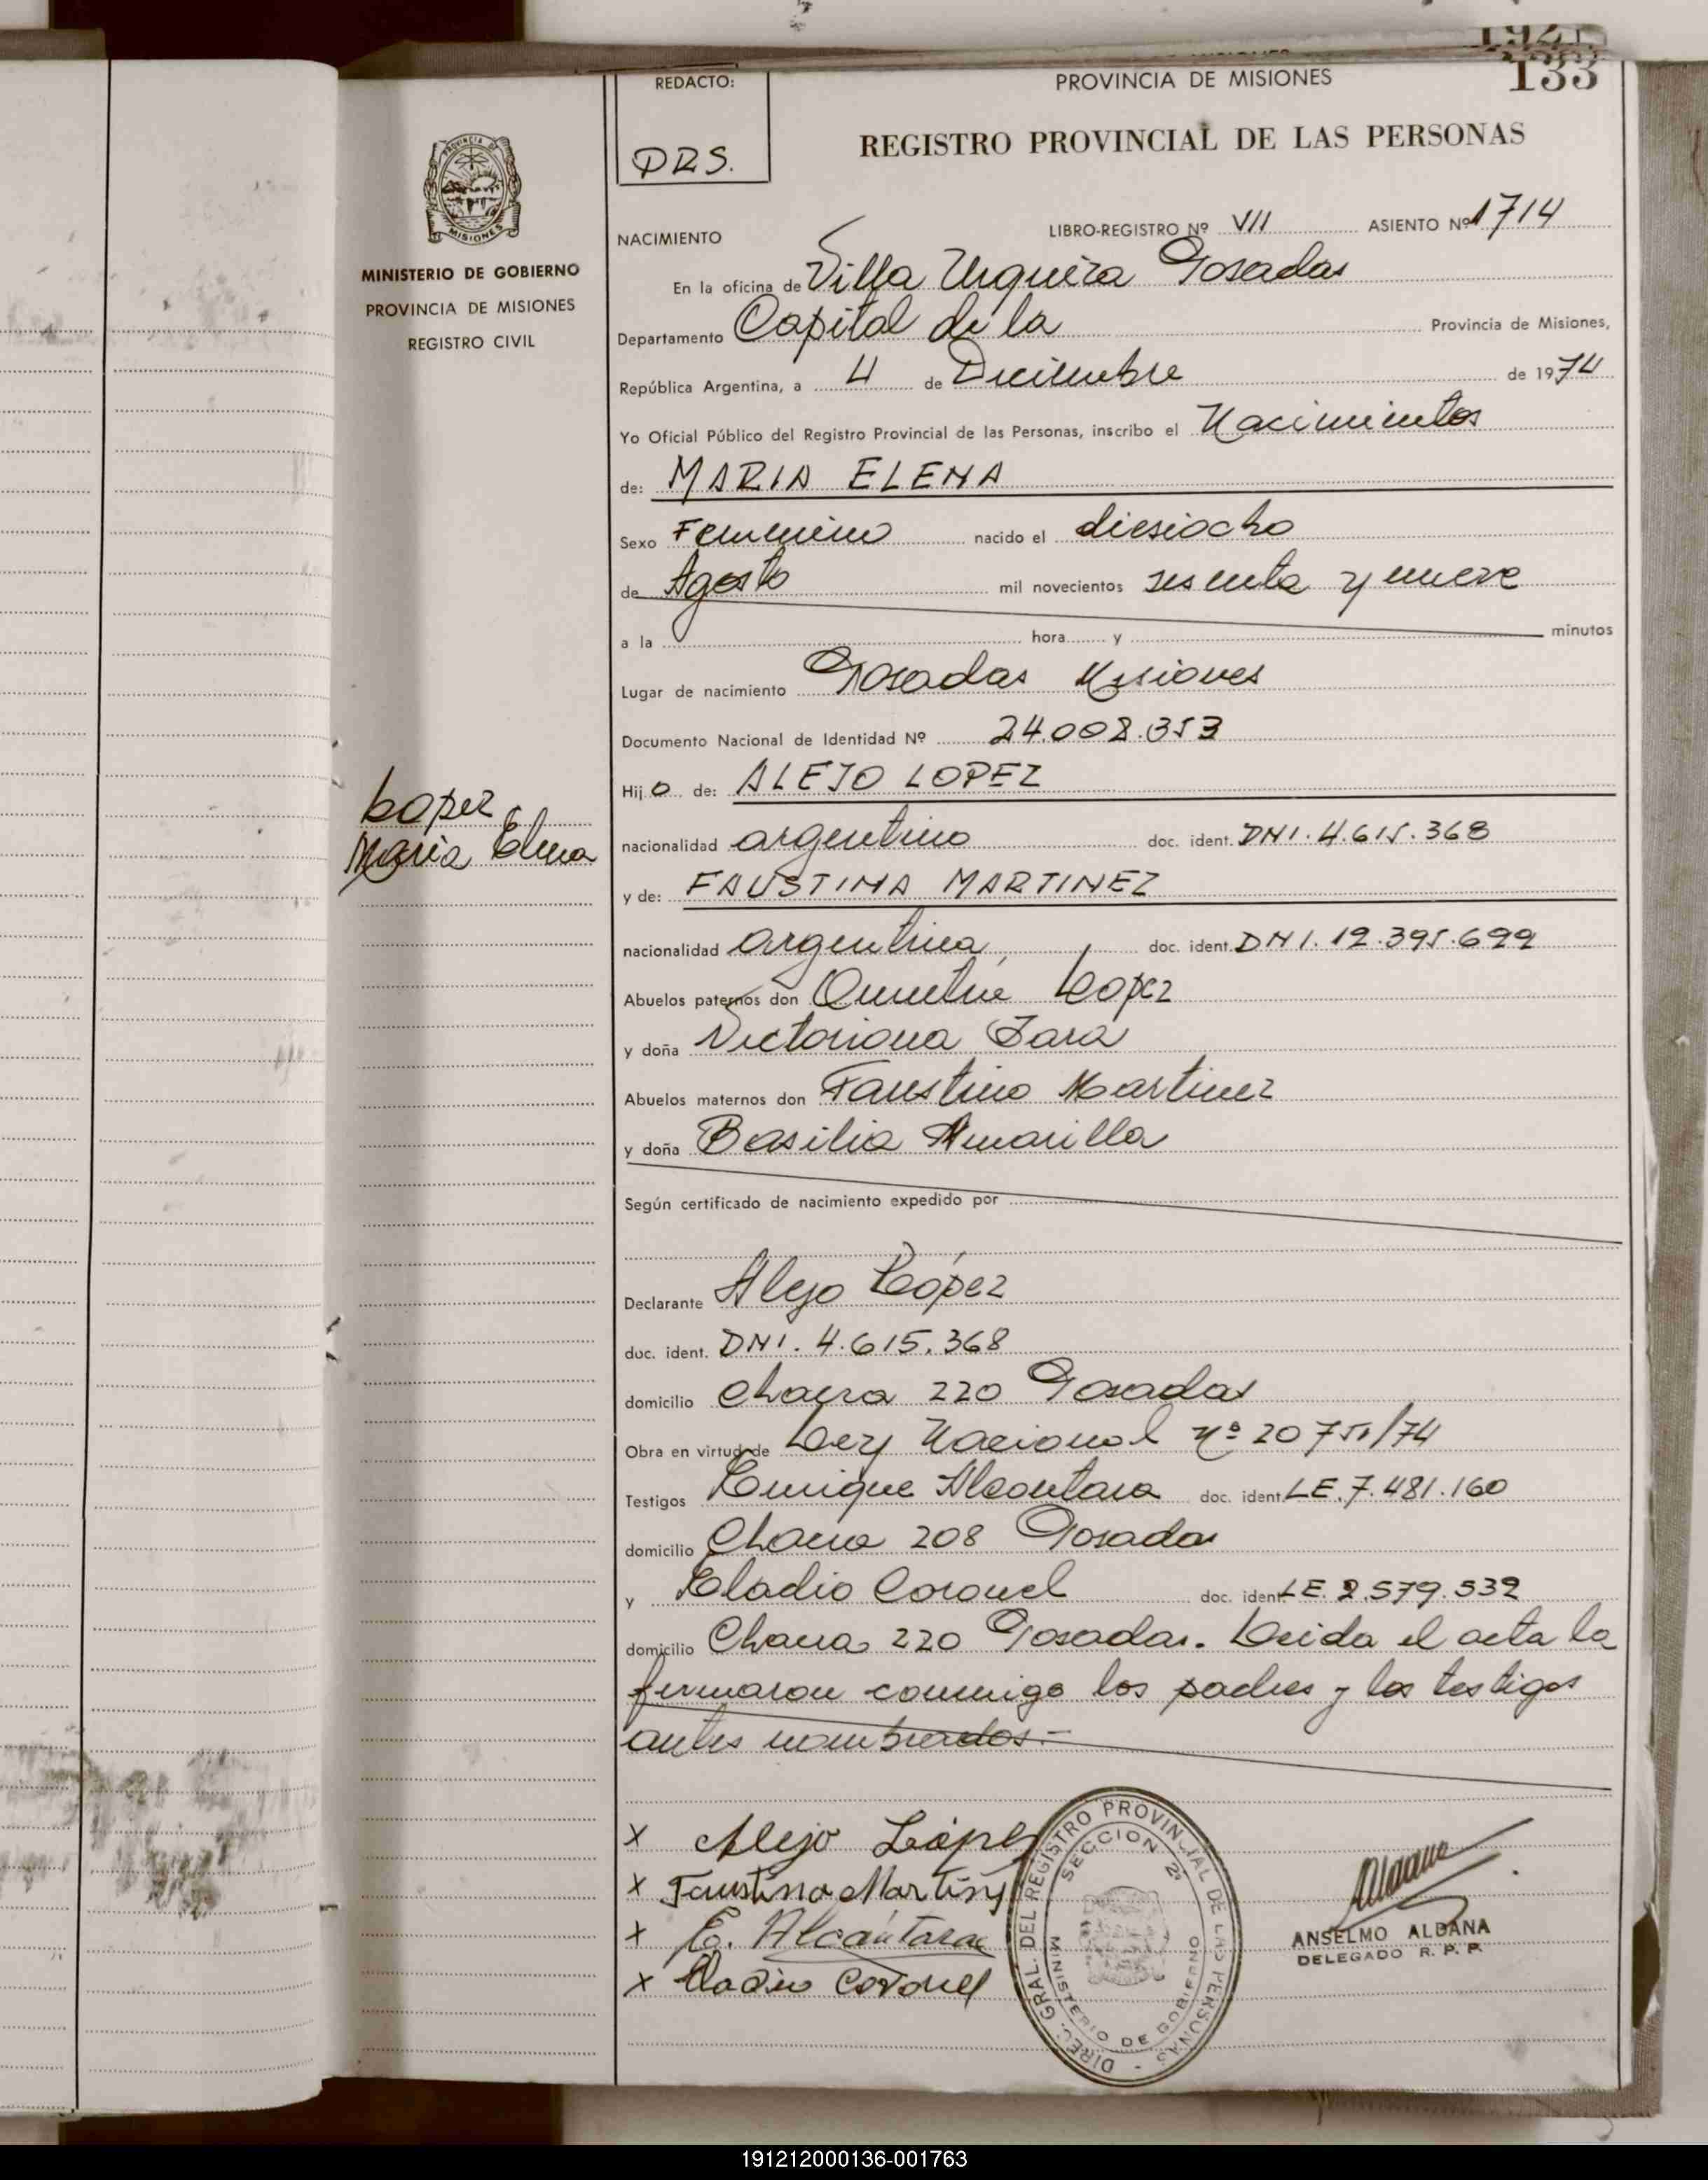 1921
133
REDACTO:
DRS.
PROVINCIA DE MISIONES
REGISTRO PROVINCIAL DE LAS PERSONAS
PROVINCIA DE
MISIONES
MINISTERIO DE GOBIERNO
PROVINCIA DE MISIONES
REGISTRO CIVIL
NACIMIENTO LIBRO-REGISTRO Nº VII ASIENTO Nº 1714
En la oficina de Villa Urquiza Posadas
Departamento Capital de la Provincia de Misiones,
República Argentina, a 4 de Diciembre de 1974
Yo Oficial Público del Registro Provincial de las Personas, inscribo el Nacimientos
de: MARIA ELENA
Sexo Femenino nacido el diesiocho
de Agosto mil novecientos sesenta y nueve
a la hora y minutos
Lugar de nacimiento Posadas Misiones
Documento Nacional de Identidad Nº 24.008.353
Hijo de: ALEJO LOPEZ
Lopez
Maria Elena
nacionalidad argentino doc. ident. DNI. 4.615.368
y de: FAUSTINA MARTINEZ
nacionalidad argentina doc. ident. DNI. 12.395.699
Abuelos paternos don Lopez
y doña Victoriana Jara
Abuelos maternos don Faustino Martinez
y doña Basilia Amarilla
Según certificado de nacimiento expedido por
Declarante Alejo López
doc. ident. DNI. 4.615.368
domicilio Chacra 220 Posadas
Obra en virtud de Ley Nacional nº 20751/74
Testigos Enrique Alcantara doc. ident. LE. 7.481.160
domicilio Chacra 208 Posadas
y Eladio Coronel doc. ident. LE. 2.579.539
domicilio Chacra 220 Posadas. Leida el acta la
firmaron conmigo los padres y los testigos
antes nombrados.-
x Alejo López
x Faustina Martinez
x E. Alcántara
x Eladio Coronel
DIREC. GRAL. DEL REGISTRO PROVINCIAL DE LAS PERSONAS -
SECCION 2ª
MINISTERIO DE GOBIERNO
Aldana
ANSELMO ALDANA
DELEGADO R. P. P.
191212000136-001763